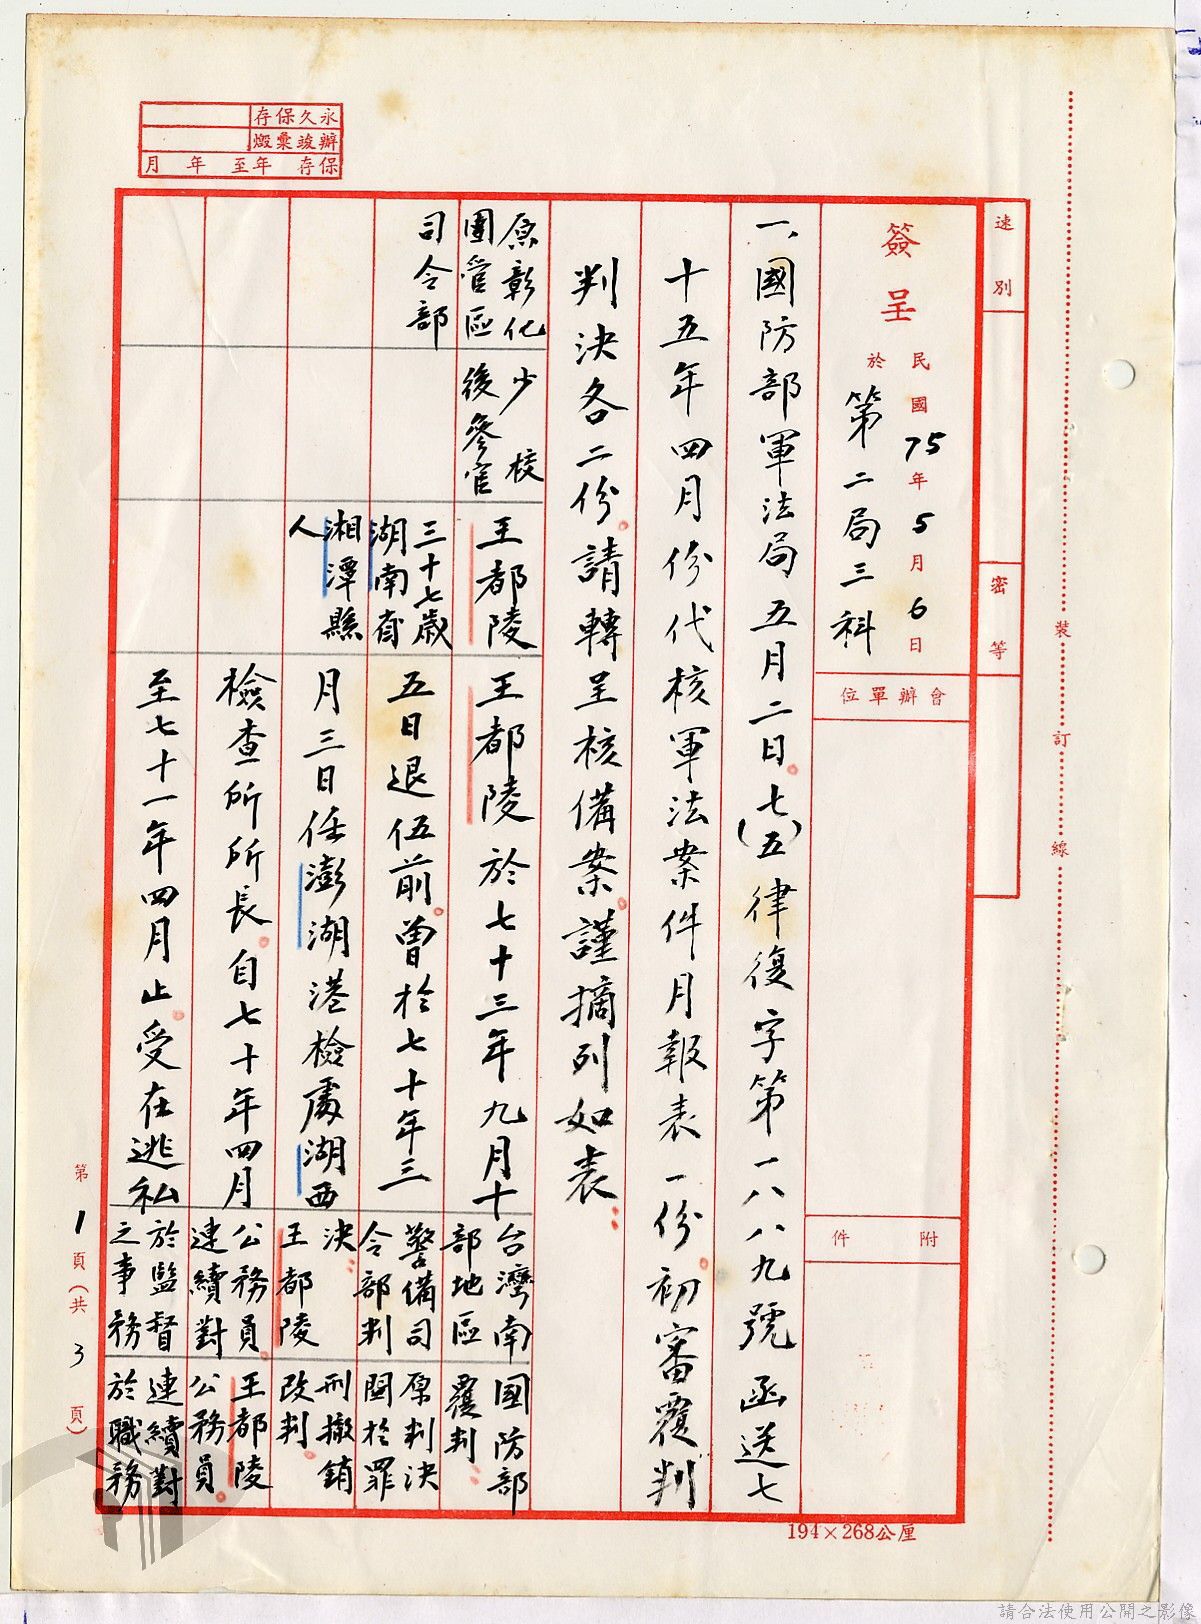 永久保存
辦竣彙燬
保存 年至 年 月
速別
密等
簽呈 民國75年5月6日
於第二局三科
會辦單位
附件
一、國防部軍法局五月二日(七五)律復字第一八八九號函送七
十五年四月份代核軍法案件月報表一份。初審覆判
判決各二份。請轉呈核備案。謹摘列如表：
原彰化
團管區
司令部
少校
後參官
王都陵
三十七歲
湖南省
湘潭縣
人
王都陵於七十三年九月十
五日退伍前。曾於七十年三
月三日任澎湖港檢處湖西
檢查所所長。自七十年四月
至七十一年四月止。受在逃私
台灣南
部地區
警備司
令部判
決：
王都陵
公務員。
連續對
於監督
之事務
國防部
覆判：
原判決
關於罪
刑撤銷
改判。
王都陵
公務員。
連續對
於職務
裝訂線
第1頁(共3頁)
194×268公厘
請合法使用公開之影像